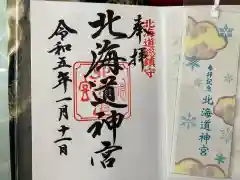 奉拝
北海道総鎮守
北海道神宮
令和五年一月十二日
参拝記念
北海道神宮